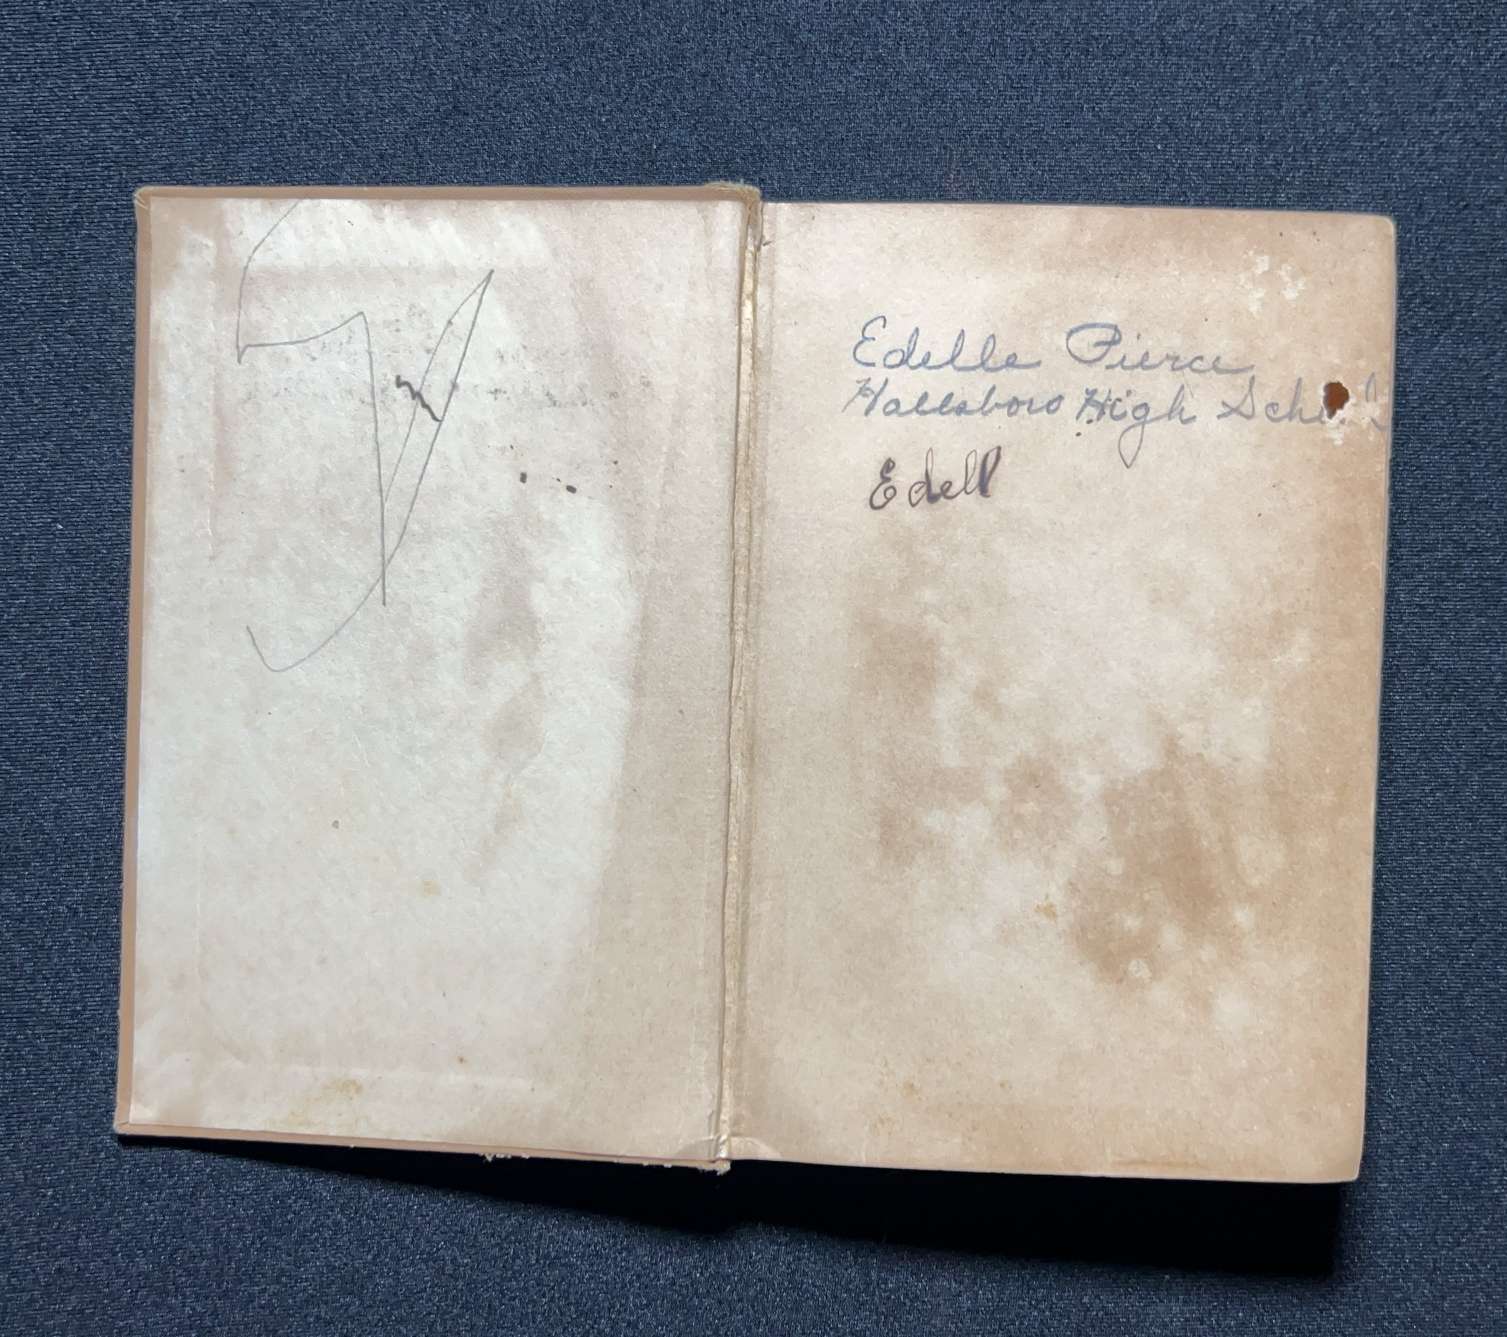 Edelle Pierce
Hallsboro High School
Edell